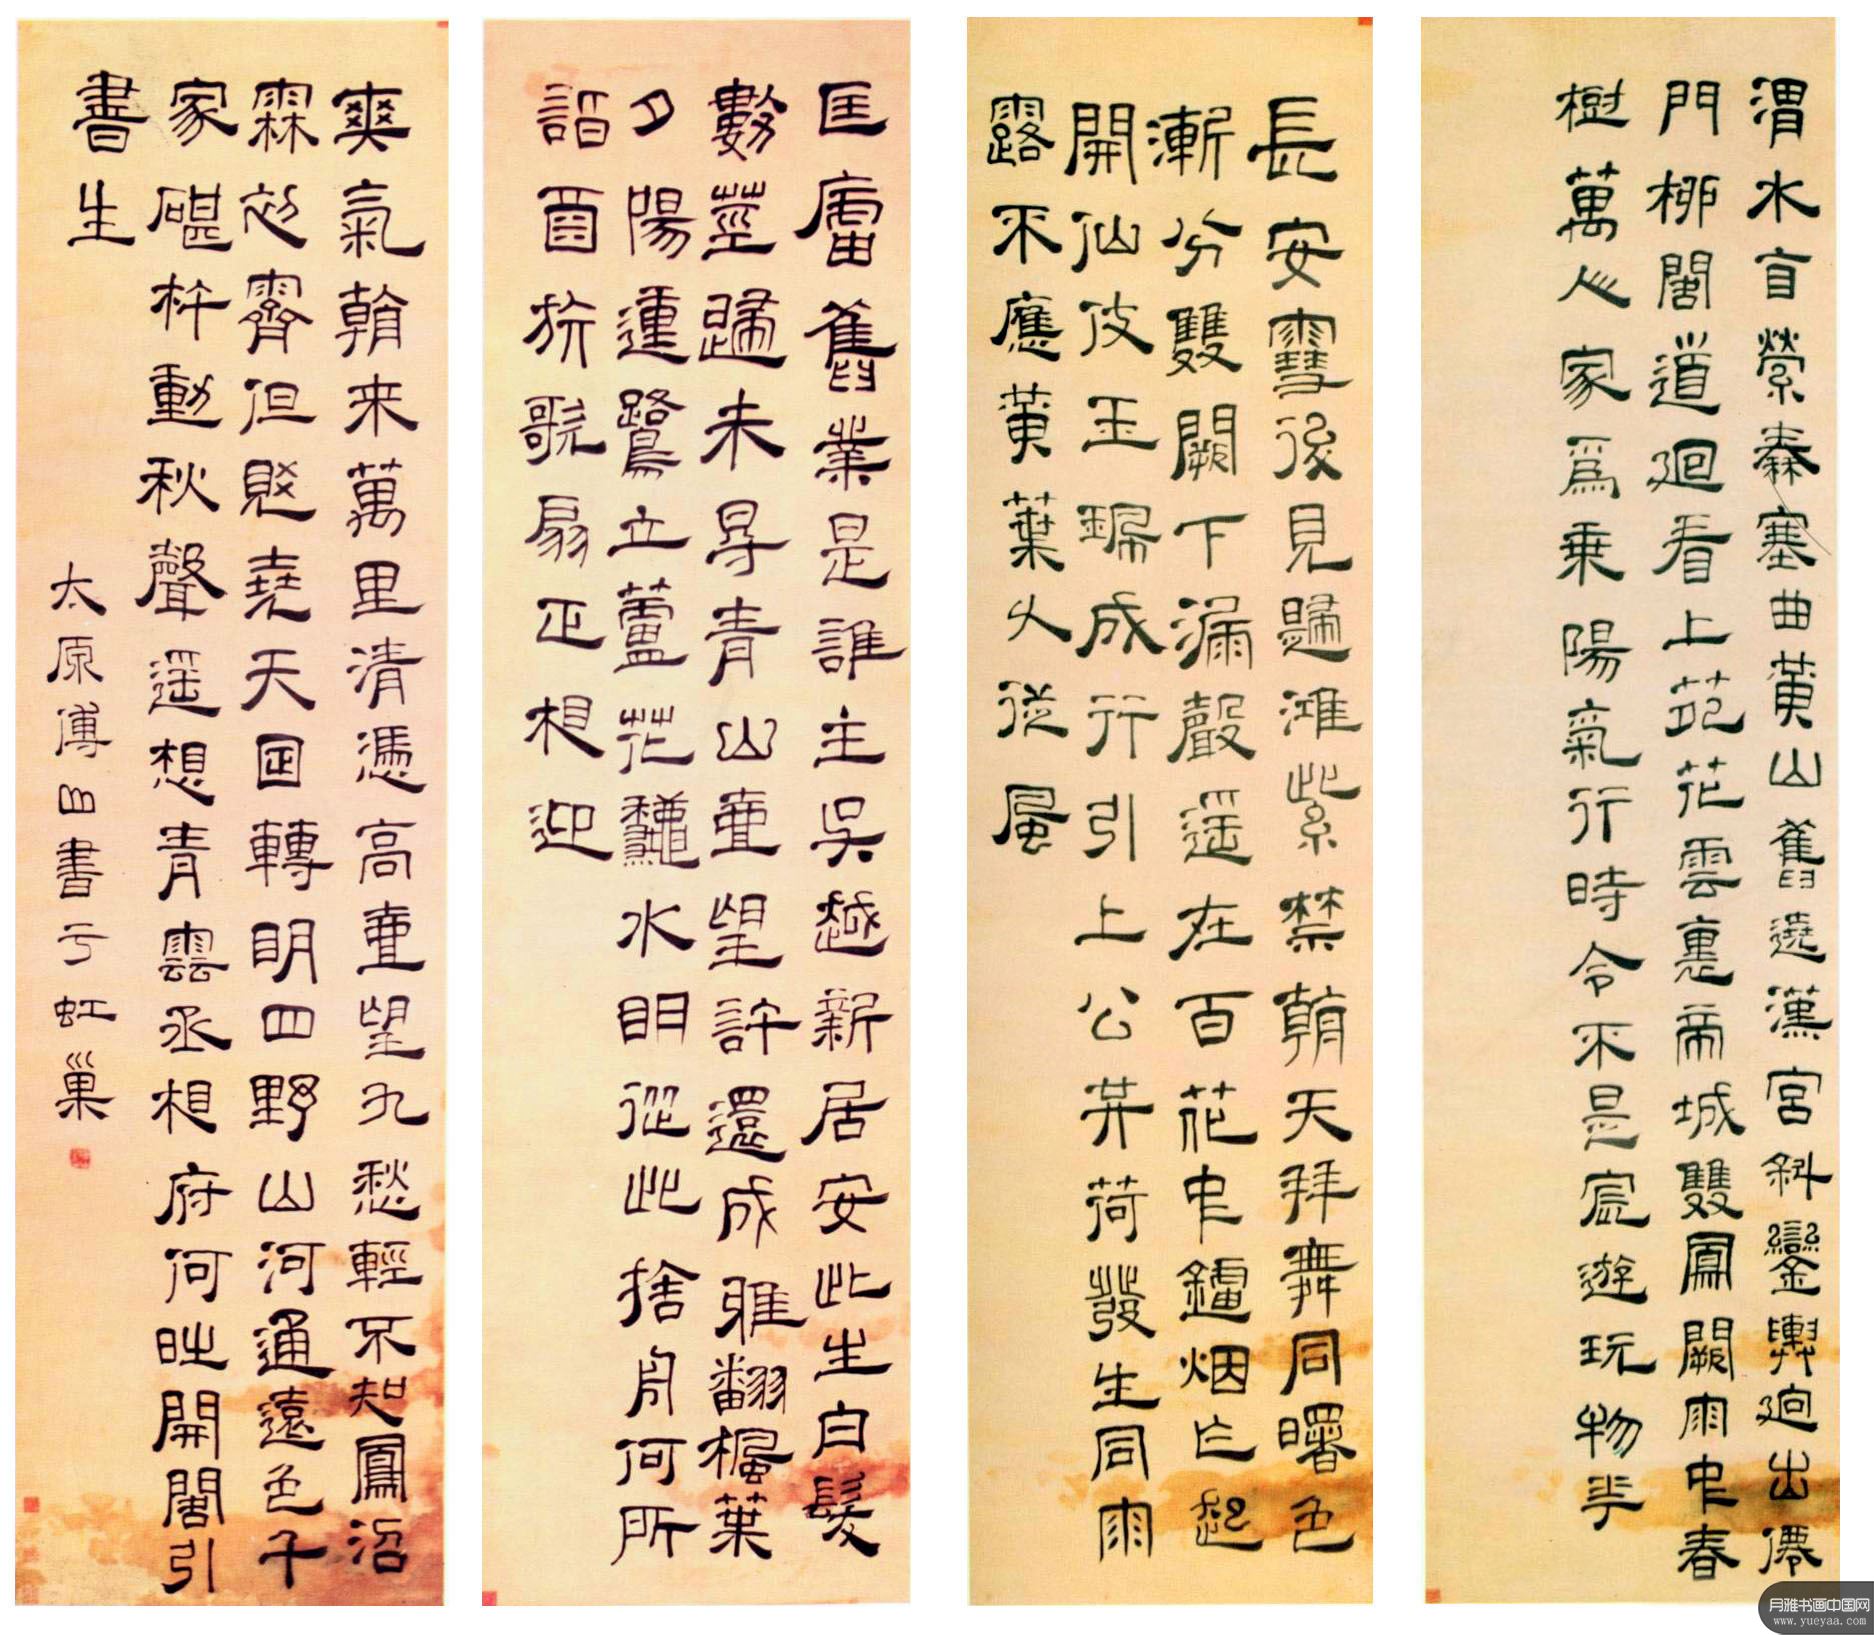 渭水自縈秦塞曲黃山舊遶漢宮斜鑾輿迥出僊
門柳閣道迴看上苑花雲裏帝城雙鳳闕雨中春
樹萬人家爲乘陽氣行時令不是宸遊玩物華
長安雪後見歸鴻紫禁朝天拜舞同曙色
漸分雙闕下漏聲遥在百花中鑪烟乍起
開仙仗玉珮成行引上公共荷發生同雨
露不應黃葉久從風
匡廬舊業是誰主吳越新居安此生白髮
數莖歸未得青山壹望計還成雅翻楓葉
夕陽動鷺立蘆花秋水明從此捨舟何所
詣酒旂歌扇正相迎
爽氣朝来萬里清憑高壹望九愁輕不知鳳沼
霖初霽但覺堯天日轉明四野山河通遠色千
家碪杵動秋聲遥想青雲丞相府何時開閣引
書生
太原傅山書于虹巢
月雅书画中国网
www.yueyaa.com